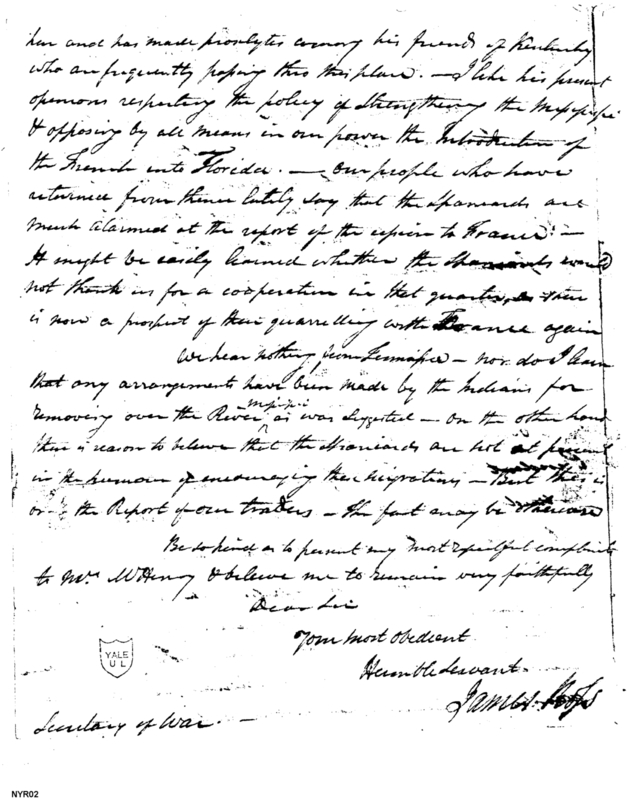 her and has made proselytes among his friends of Kentucky
who are frequently passing thro this place. — I like his present
opinions respecting the policy of strengthening the Missisipi
& opposing by all means in our power the Introduction of
the French into Florida. — Our people who have
returned from thence lately say that the Spaniards are
much alarmed at the report of the cession to France. —
It might be easily learned whether the Spaniards would
not thank us for a cooperation in that quarter, as there
is now a prospect of their quarrelling with France again
We hear nothing from Tennassee — nor do I learn
that any arrangements have been made by the Indians for
removing over the River Missipi as was suggested — On the other hand
there is reason to believe that the Spaniards are not at present
in the humour of encouraging these migrations — But this is
the Report of our traders — the fact may be otherwise
Be so kind as to present my most respectful compliments
to Mrs McHenry & believe me to remain very faithfully
Dear Sir
Your Most Obedient
Humble Servant
James Ross
Secretary of War. —
YALE
U L
NYR02